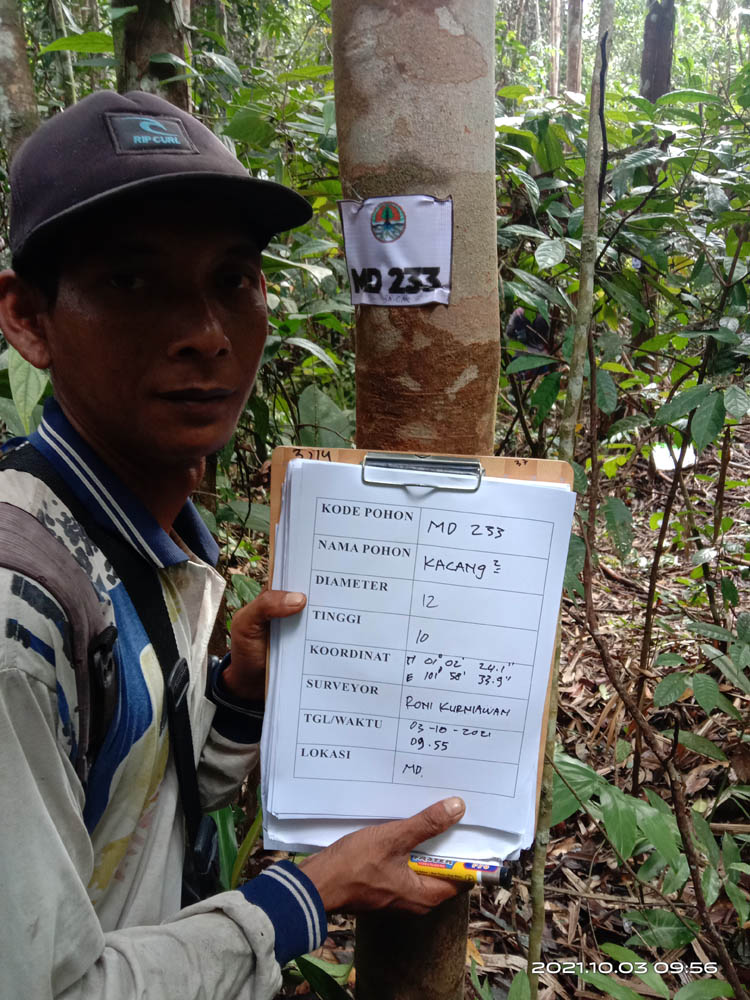 RIP CURL
MD 233
KODE POHON MD 233
NAMA POHON KACANG 2
DIAMETER 12
TINGGI 10
KOORDINAT N 01° 02' 24.1"
E 101° 58' 33.9"
SURVEYOR RONI KURNIAWAN
TGL/WAKTU 03-10-2021
09.55
LOKASI MD.
2021.10.03 09:56